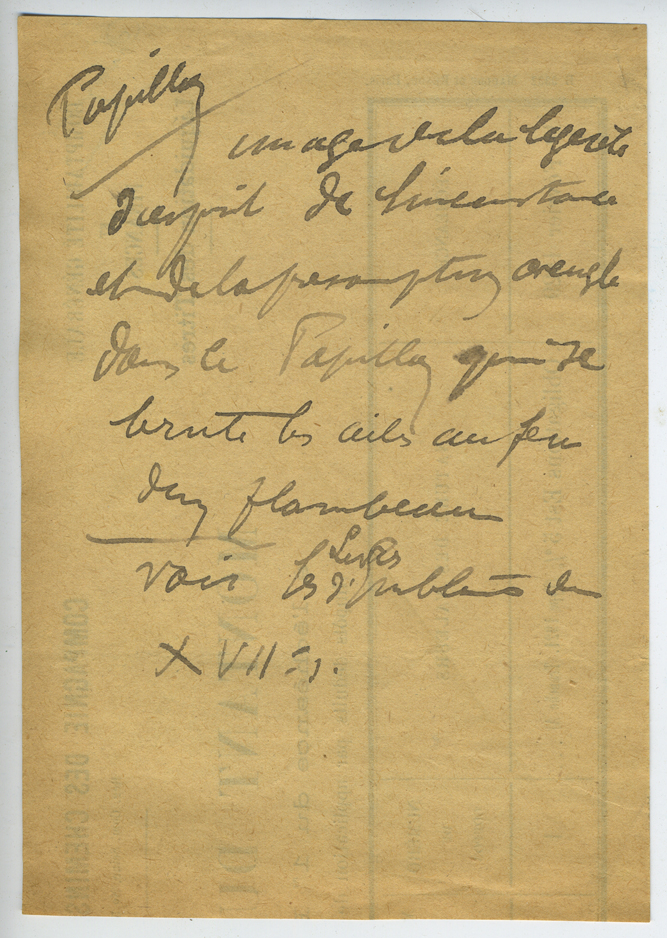 Papillon
image de la légèreté
d'esprit de l'inconstance
et de la présomption aveugle
dans le Papillon qui se
brule les ailes au feu
d'un flambeau
voir les Livres d'emblèmes du
XVIIe s.
COMPAGNIE DES CHEMINS